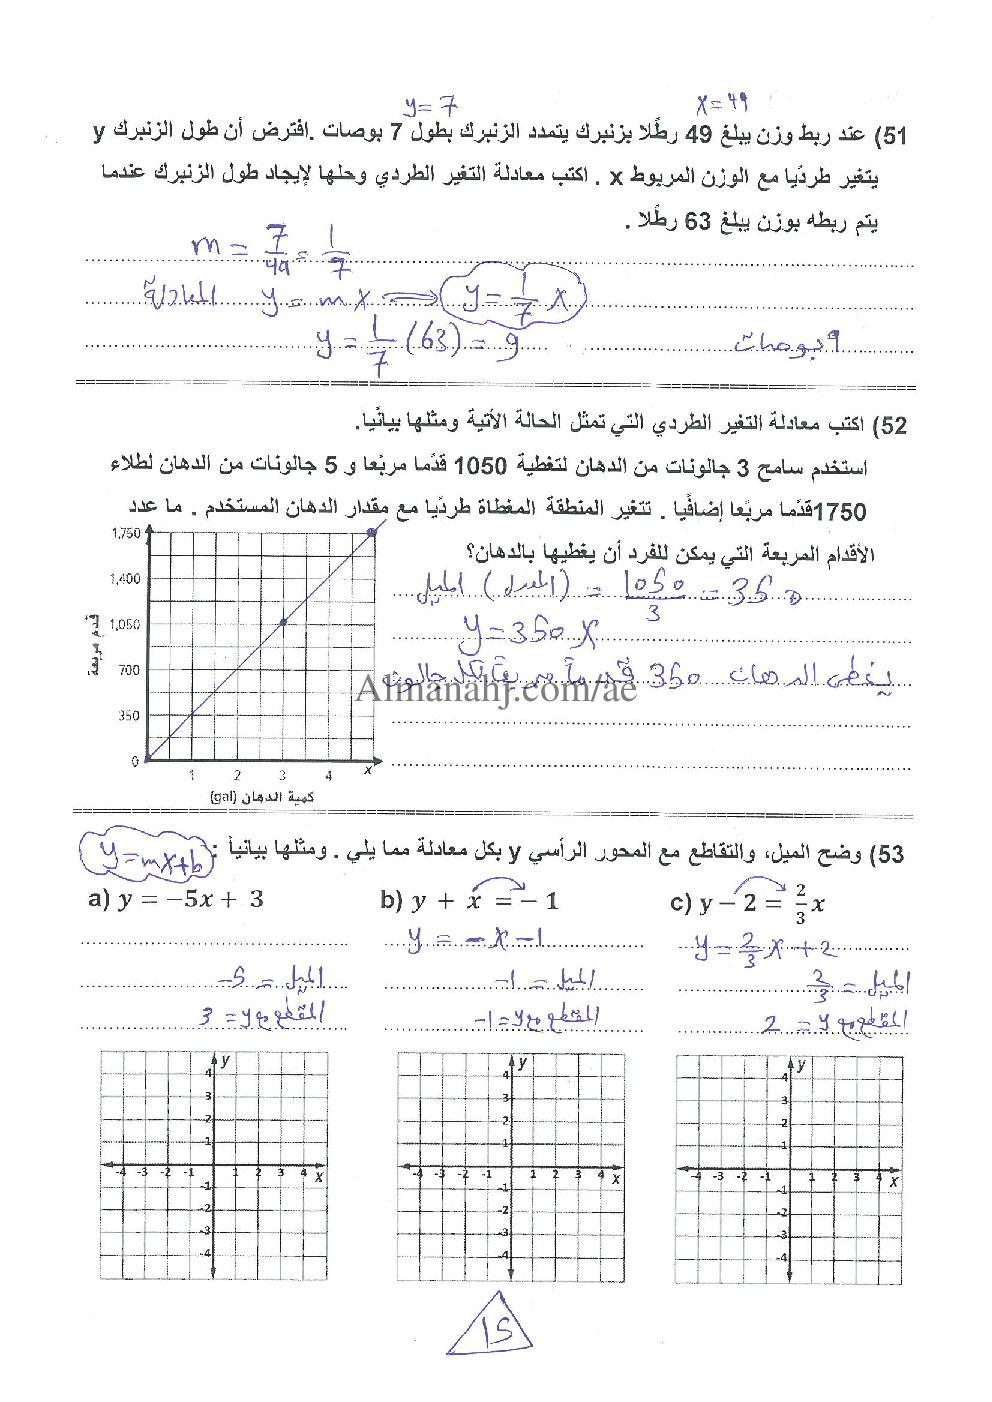 y = 7
x = 49
51) عند ربط وزن يبلغ 49 رطلًا بزنبرك يتمدد الزنبرك بطول 7 بوصات .افترض أن طول الزنبرك y
يتغير طرديًا مع الوزن المربوط x . اكتب معادلة التغير الطردي وحلها لإيجاد طول الزنبرك عندما
يتم ربطه بوزن يبلغ 63 رطلًا .
m = 7/49 = 1/7
المعادلة y = mx ⟹ y = 1/7 x
y = 1/7 (63) = 9
9 بوصات
52) اكتب معادلة التغير الطردي التي تمثل الحالة الآتية ومثلها بيانيًا.
استخدم سامح 3 جالونات من الدهان لتغطية 1050 قدمًا مربعًا و 5 جالونات من الدهان لطلاء
1750قدمًا مربعًا إضافيًا . تتغير المنطقة المغطاة طرديًا مع مقدار الدهان المستخدم . ما عدد
الأقدام المربعة التي يمكن للفرد أن يغطيها بالدهان؟
الميل (المعدل) = 1050/3 = 350
y = 350 x
يغطي الدهان 350 قدمًا مربعًا لكل جالون
Almanahj.com/ae
1,750
1,400
1,050
700
350
0
1 2 3 4 x
قدم مربعة
كمية الدهان (gal)
53) وضح الميل، والتقاطع مع المحور الرأسي y بكل معادلة مما يلي . ومثلها بيانياً :
y = mx+b
a) y = −5x + 3
b) y + x = − 1
c) y − 2 = 2/3 x
y = -x -1
y = 2/3 x + 2
الميل = -5
الميل = -1
الميل = 2/3
المقطع مع y = 3
المقطع مع y = -1
المقطع مع y = 2
y
4
3
2
1
-4 -3 -2 -1 1 2 3 4 x
-1
-2
-3
-4
y
4
3
2
1
-4 -3 -2 -1 1 2 3 4 x
-1
-2
-3
-4
y
4
3
2
1
-4 -3 -2 -1 1 2 3 4 x
-1
-2
-3
-4
15